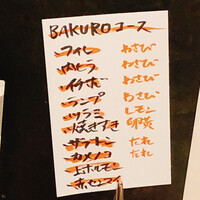 BAKUROコース
フィレ わさび
はとう わさび
イチボ わさび
ランプ わさび
ツラミ レモン
焼きすき 卵黄
サブトン たれ
カメノコ たれ
上ホルモン
赤センマイ